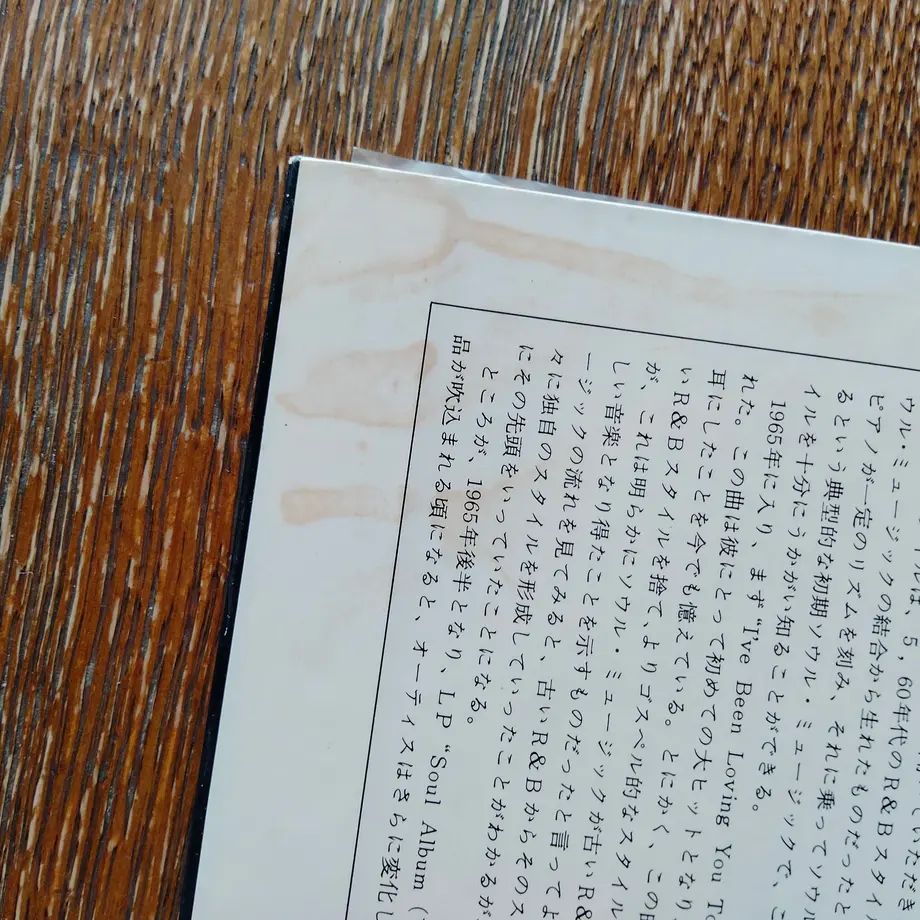 いただき
ルは、5，60年代のR&Bスタイ
ウル・ミュージックの結合から生れたものだったと
ピアノが一定のリズムを刻み、それに乗ってソウル
るという典型的な初期ソウル・ミュージックで、こ
イルを十分にうかがい知ることができる。
1965年に入り、まず“I've Been Loving You To
れた。この曲は彼にとって初めての大ヒットとなり
耳にしたことを今でも憶えている。とにかく、この曲
いR&Bスタイルを捨て、よりゴスペル的なスタイル
が、これは明らかにソウル・ミュージックが古いR&
しい音楽となり得たことを示すものだったと言ってよ
ージックの流れを見てみると、古いR&Bからそのス
々に独自のスタイルを形成していったことがわかるが
にその先頭をいっていたことになる。
ところが、1965年後半となり、LP “Soul Album (
品が吹込まれる頃になると、オーティスはさらに変化し